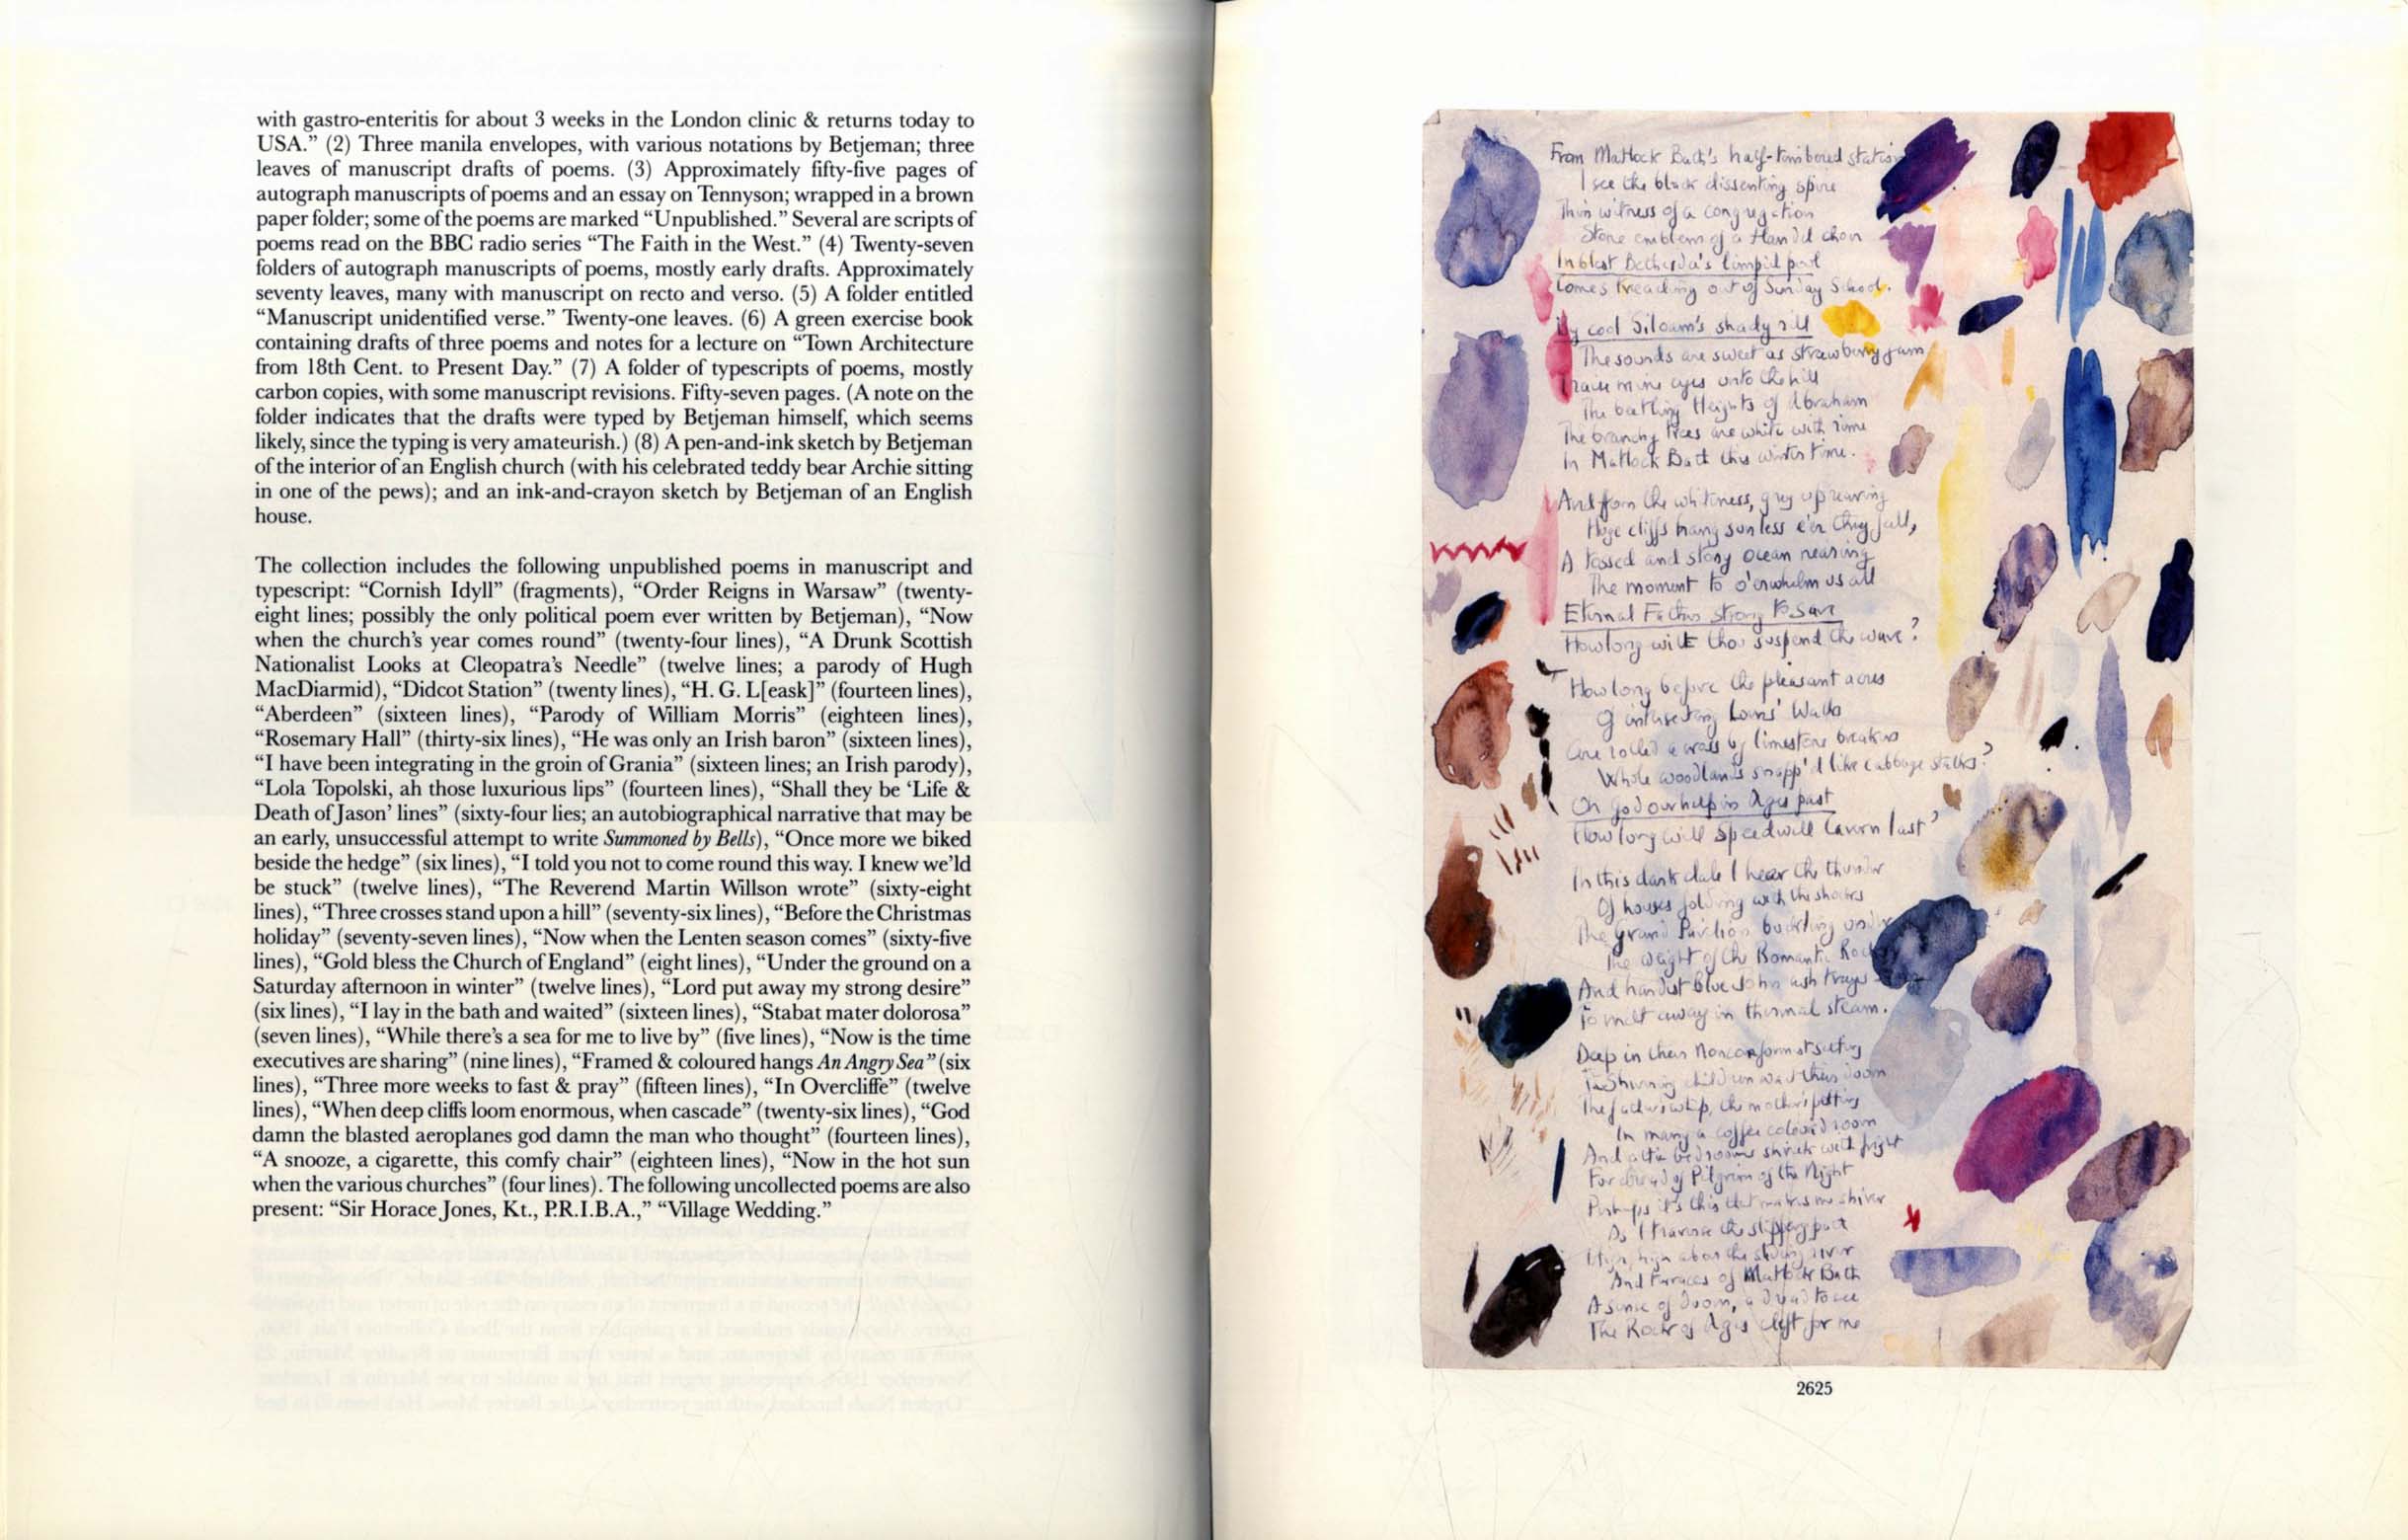 with gastro-enteritis for about 3 weeks in the London clinic & returns today to
USA.” (2) Three manila envelopes, with various notations by Betjeman; three
leaves of manuscript drafts of poems. (3) Approximately fifty-five pages of
autograph manuscripts of poems and an essay on Tennyson; wrapped in a brown
paper folder; some of the poems are marked “Unpublished.” Several are scripts of
poems read on the BBC radio series “The Faith in the West.” (4) Twenty-seven
folders of autograph manuscripts of poems, mostly early drafts. Approximately
seventy leaves, many with manuscript on recto and verso. (5) A folder entitled
“Manuscript unidentified verse.” Twenty-one leaves. (6) A green exercise book
containing drafts of three poems and notes for a lecture on “Town Architecture
from 18th Cent. to Present Day.” (7) A folder of typescripts of poems, mostly
carbon copies, with some manuscript revisions. Fifty-seven pages. (A note on the
folder indicates that the drafts were typed by Betjeman himself, which seems
likely, since the typing is very amateurish.) (8) A pen-and-ink sketch by Betjeman
of the interior of an English church (with his celebrated teddy bear Archie sitting
in one of the pews); and an ink-and-crayon sketch by Betjeman of an English
house.
The collection includes the following unpublished poems in manuscript and
typescript: “Cornish Idyll” (fragments), “Order Reigns in Warsaw” (twenty-
eight lines; possibly the only political poem ever written by Betjeman), “Now
when the church’s year comes round” (twenty-four lines), “A Drunk Scottish
Nationalist Looks at Cleopatra’s Needle” (twelve lines; a parody of Hugh
MacDiarmid), “Didcot Station” (twenty lines), “H. G. L[eask]” (fourteen lines),
“Aberdeen” (sixteen lines), “Parody of William Morris” (eighteen lines),
“Rosemary Hall” (thirty-six lines), “He was only an Irish baron” (sixteen lines),
“I have been integrating in the groin of Grania” (sixteen lines; an Irish parody),
“Lola Topolski, ah those luxurious lips” (fourteen lines), “Shall they be ‘Life &
Death of Jason’ lines” (sixty-four lies; an autobiographical narrative that may be
an early, unsuccessful attempt to write Summoned by Bells), “Once more we biked
beside the hedge” (six lines), “I told you not to come round this way. I knew we’ld
be stuck” (twelve lines), “The Reverend Martin Willson wrote” (sixty-eight
lines), “Three crosses stand upon a hill” (seventy-six lines), “Before the Christmas
holiday” (seventy-seven lines), “Now when the Lenten season comes” (sixty-five
lines), “Gold bless the Church of England” (eight lines), “Under the ground on a
Saturday afternoon in winter” (twelve lines), “Lord put away my strong desire”
(six lines), “I lay in the bath and waited” (sixteen lines), “Stabat mater dolorosa”
(seven lines), “While there’s a sea for me to live by” (five lines), “Now is the time
executives are sharing” (nine lines), “Framed & coloured hangs An Angry Sea” (six
lines), “Three more weeks to fast & pray” (fifteen lines), “In Overcliffe” (twelve
lines), “When deep cliffs loom enormous, when cascade” (twenty-six lines), “God
damn the blasted aeroplanes god damn the man who thought” (fourteen lines),
“A snooze, a cigarette, this comfy chair” (eighteen lines), “Now in the hot sun
when the various churches” (four lines). The following uncollected poems are also
present: “Sir Horace Jones, Kt., P.R.I.B.A.,” “Village Wedding.”
From Matlock Bath's half-timbered station
I see the black dissenting spire
Thin witness of a congregation
Stone emblem of a Handel choir
In blest Bethesda's limpid pool
Comes treacling out of Sunday School.
By cool Siloam's shady rill
The sounds are sweet as strawberry jam
I raise mine eyes unto the hill
The beetling Heights of Abraham
The branchy trees are white with rime
In Matlock Bath this winter time.
And from the whiteness, grey uprearing
Huge cliffs hang sunless e'er they fall,
A tossed and stony ocean nearing
The moment to o'erwhelm us all
Eternal Father strong to save
How long wilt thou suspend the wave?
How long before the pleasant acres
Of intersecting Lovers' Walks
Are rolled across by limestone breakers
Whole woodlands snapp'd like cabbage stalks?
Oh God our help in Ages past
How long will Speedwell Cavern last?
In this dark dale I hear the thunder
Of houses folding with the shocks
The Grand Pavilion buckling under
The weight of the Romantic Rocks
And hardest blue John ash trays
To melt away in thermal steam.
Deep in their Nonconformist setting
The shivering children wait their doom
The father's whip, the mother's petting
In many a coffee coloured room
And attic bedrooms shriek with fright
For dread of Pilgrims of the Night
Perhaps it's this that makes me shiver
As I traverse the slippery path
High, high above the sliding river
And terraces of Matlock Bath
A sense of doom, a dread to see
The Rock of Ages cleft for me
2625